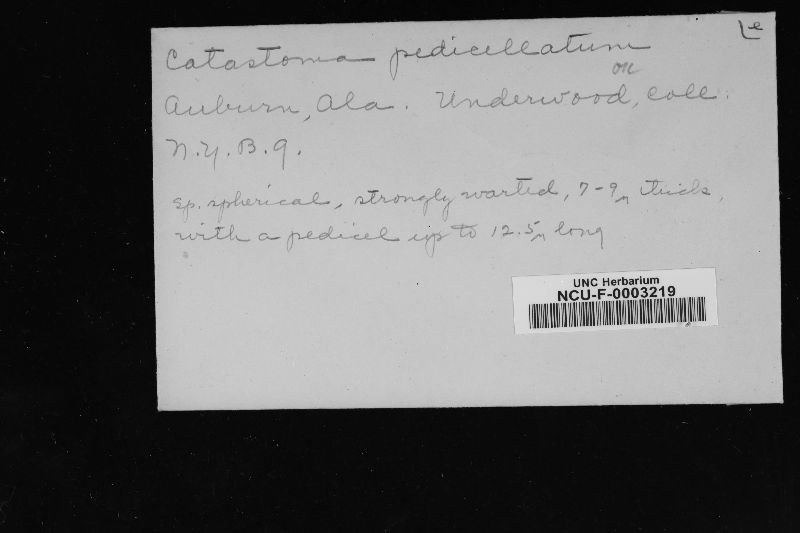 Le
Catastoma pedicellatum
OK
Auburn, Ala. Underwood, coll.
N.Y.B.G.
Sp. spherical, strongly warted, 7-9µ thick,
with a pedicel up to 12.5µ long
UNC Herbarium
NCU-F-0003219